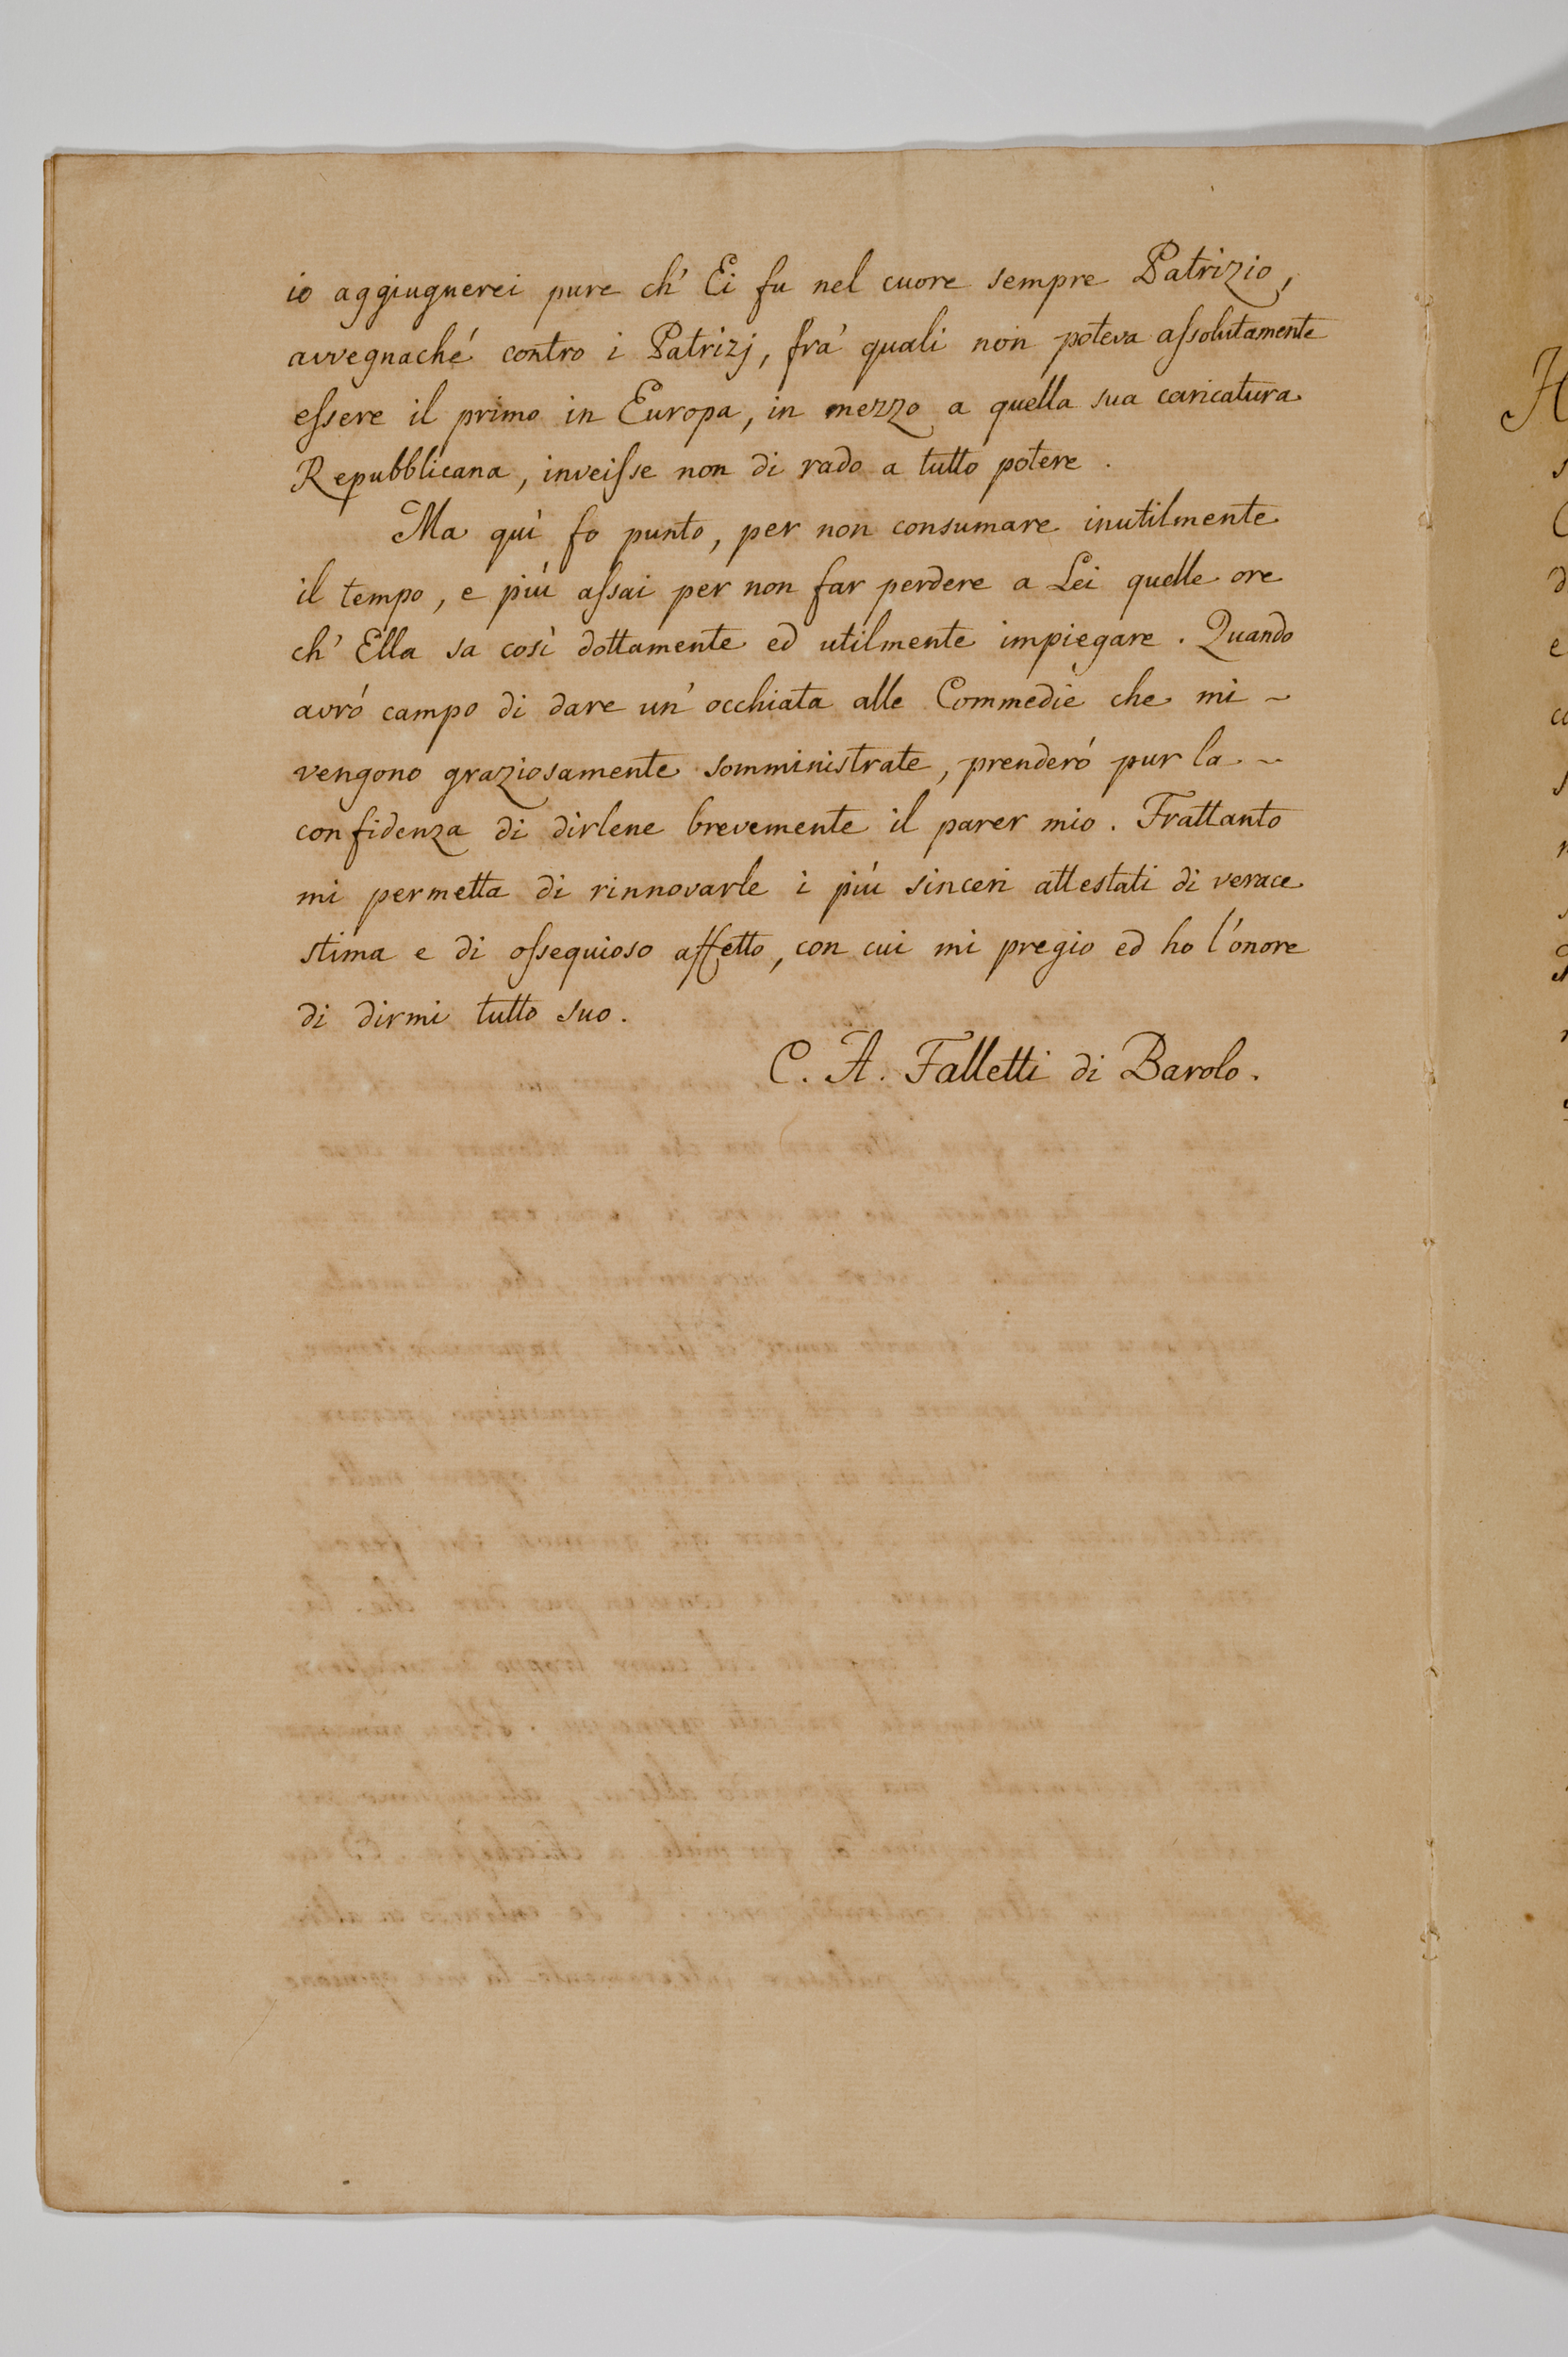 io aggiugnerei pure ch' Ei fu nel cuore sempre Patrizio,
avvegnaché contro i Patrizj, frà quali non poteva aſsolutamente
eſsere il primo in Europa, in mezzo a quella sua caricatura
Repubblicana, inveiſse non di rado a tutto potere.
Ma quì fo punto, per non consumare inutilmente
il tempo, e più aſsai per non far perdere a Lei quelle ore
ch' Ella sa così dottamente ed utilmente impiegare. Quando
avrò campo di dare un' occhiata alle Commedie che mi ~
vengono graziosamente somministrate, prenderó pur la ~
confidenza di dirlene brevemente il parer mio. Frattanto
mi permetta di rinnovarle i più sinceri attestati di verace
stima e di oſsequioso affetto, con cui mi pregio ed ho l'onore
di dirmi tutto suo.
C. A. Falletti di Barolo.